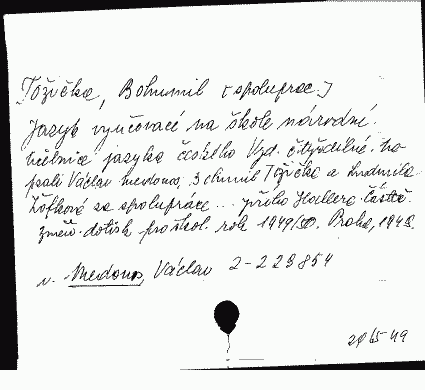 Tožička, Bohumil [spoluprac.]
Jazyk vyučovací na škole národní.
Učebnice jazyka českého Vyd. čtyřdílné. Na
psali Václav Medonos, Bohumil Tožička a Ludmila
Zofková za spolupráce ... Jiřího Hallera. Částeč.
změň. dotisk pro škol. rok 1949/50. Praha, 1949.
v. Medonos, Václav 2-223854